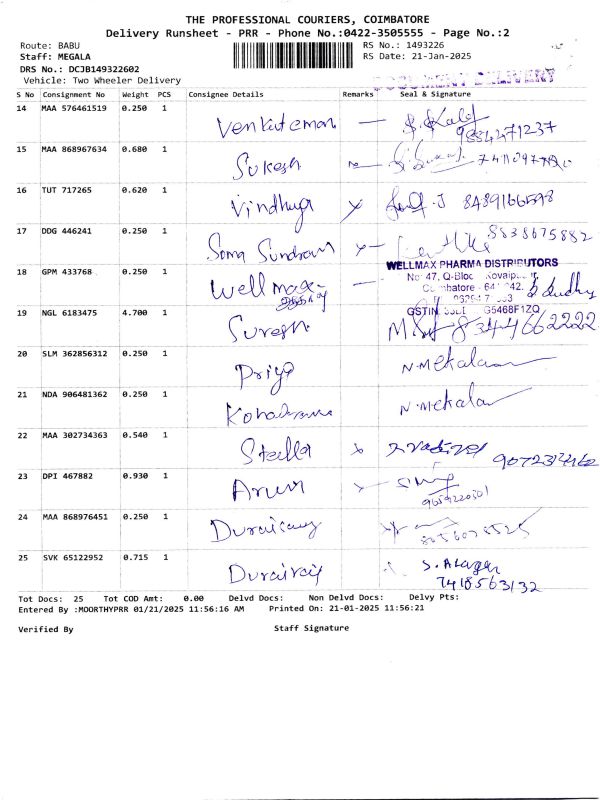 THE PROFESSIONAL COURIERS, COIMBATORE
Delivery Runsheet - PRR - Phone No.:0422-3505555 - Page No.:2
Route: BABU RS No.: 1493226
Staff: MEGALA RS Date: 21-Jan-2025
DRS No.: DCJB149322602
Vehicle: Two Wheeler Delivery
DOCUMENT DELIVERY
S No Consignment No Weight PCS Consignee Details Remarks Seal & Signature
14 MAA 576461519 0.250 1 Venkateman
9884471237
15 MAA 868967634 0.680 1 Sukesh
16 TUT 717265 0.620 1 Vindhuja 8489166598
17 DDG 446241 0.250 1 Soma Sundram 8838675882
18 GPM 433768 0.250 1 Wellmax
WELLMAX PHARMA DISTRIBUTORS
No: 47, Q-Bloc
19 NGL 6183475 4.700 1 Suresh 8344662222
20 SLM 362856312 0.250 1 Priya N. Mekalaa
21 NDA 906481362 0.250 1 N. Mekala
22 MAA 302734363 0.540 1 Stella
23 DPI 467882 0.930 1 Arun
9659220501
24 MAA 868976451 0.250 1 Duraisamy
25 SVK 65122952 0.715 1 Durairaj S. Alagar
7418563132
Tot Docs: 25 Tot COD Amt: 0.00 Delvd Docs: Non Delvd Docs: Delvy Pts:
Entered By :MOORTHYPRR 01/21/2025 11:56:16 AM Printed On: 21-01-2025 11:56:21
Verified By Staff Signature